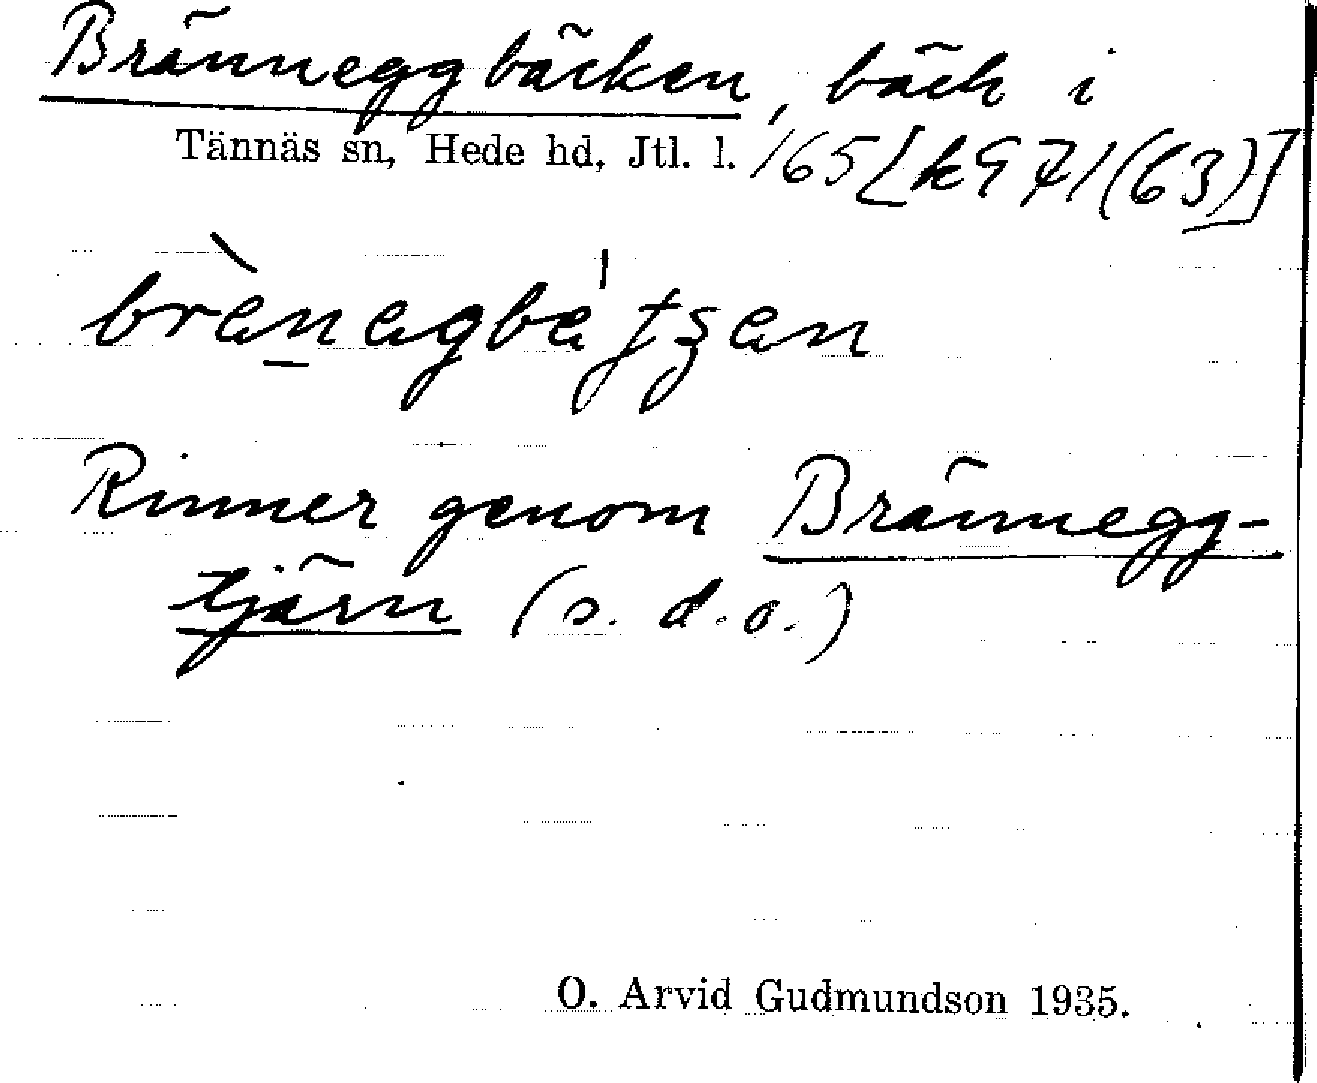 Bränneggbäcken, bäck i
Tännäs sn, Hede hd, Jtl. l. 165 [k971(63)]
Rinner genom Brännegg-
tjärn (s. d. o.)
O. Arvid Gudmundson 1935.